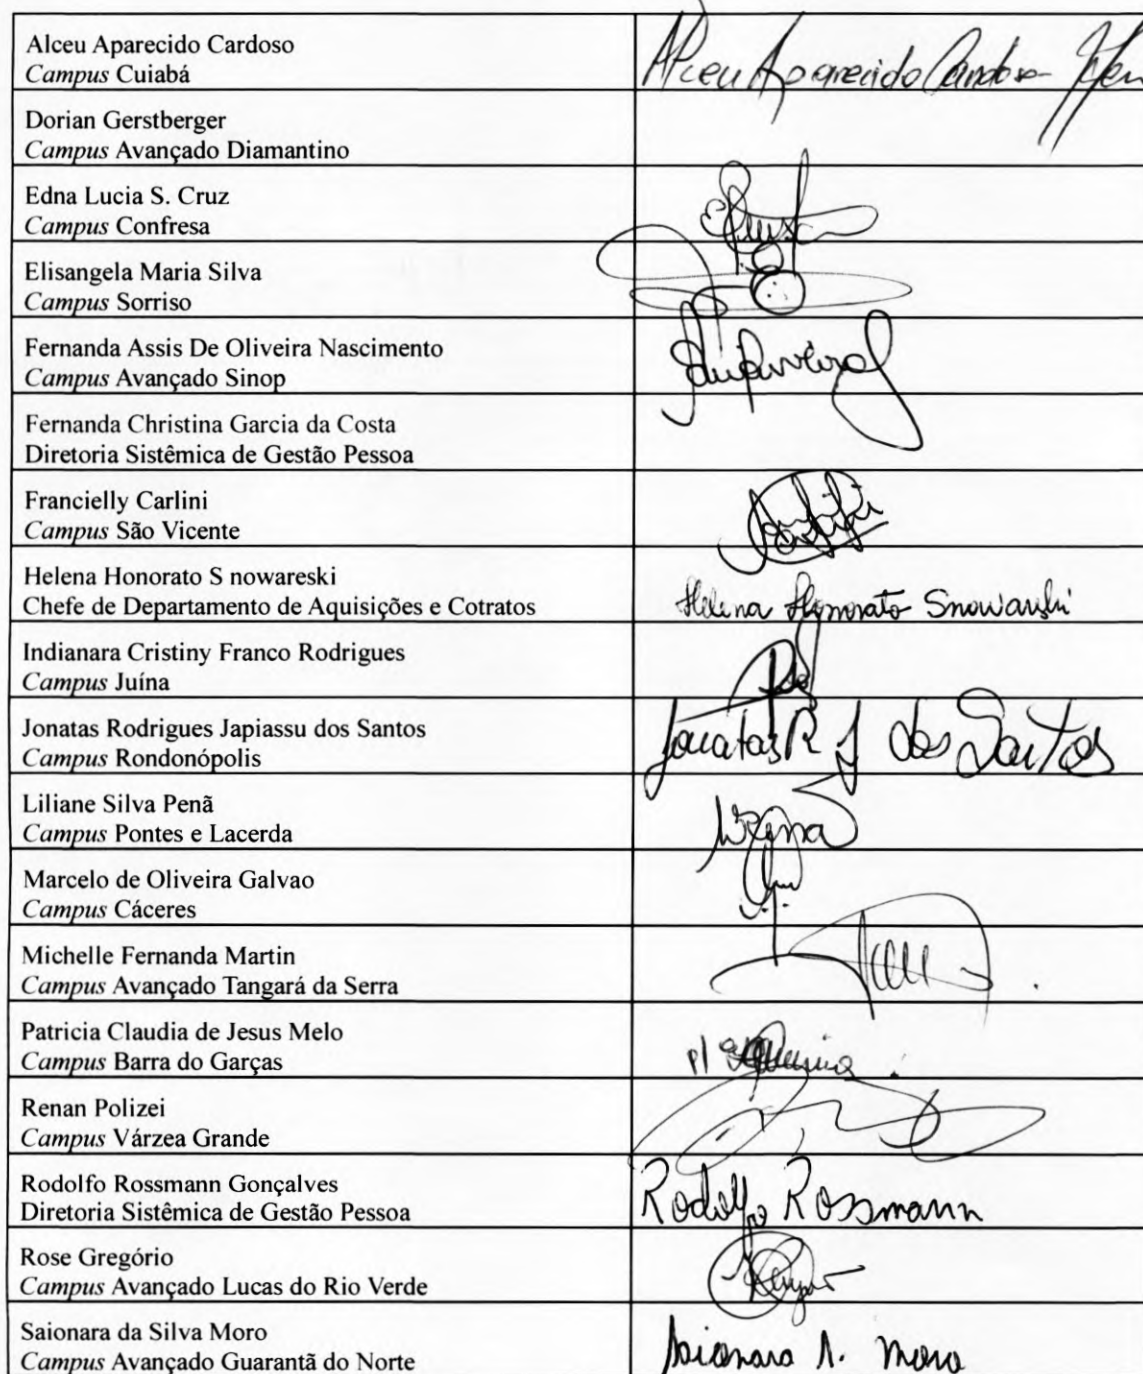 Alceu Aparecido Cardoso
Campus Cuiabá
Alceu Aparecido Cardoso
Dorian Gerstberger
Campus Avançado Diamantino
Edna Lucia S. Cruz
Campus Confresa
Elisangela Maria Silva
Campus Sorriso
Fernanda Assis De Oliveira Nascimento
Campus Avançado Sinop
Fernanda Christina Garcia da Costa
Diretoria Sistêmica de Gestão Pessoa
Francielly Carlini
Campus São Vicente
Helena Honorato S nowareski
Chefe de Departamento de Aquisições e Cotratos
Helena Honorato Snowareski
Indianara Cristiny Franco Rodrigues
Campus Juína
Jonatas Rodrigues Japiassu dos Santos
Campus Rondonópolis
Jonatas R J dos Santos
Liliane Silva Penã
Campus Pontes e Lacerda
Marcelo de Oliveira Galvao
Campus Cáceres
Michelle Fernanda Martin
Campus Avançado Tangará da Serra
Patricia Claudia de Jesus Melo
Campus Barra do Garças
Renan Polizei
Campus Várzea Grande
Rodolfo Rossmann Gonçalves
Diretoria Sistêmica de Gestão Pessoa
Rodolfo Rossmann
Rose Gregório
Campus Avançado Lucas do Rio Verde
Saionara da Silva Moro
Campus Avançado Guarantã do Norte
Saionara S. Moro